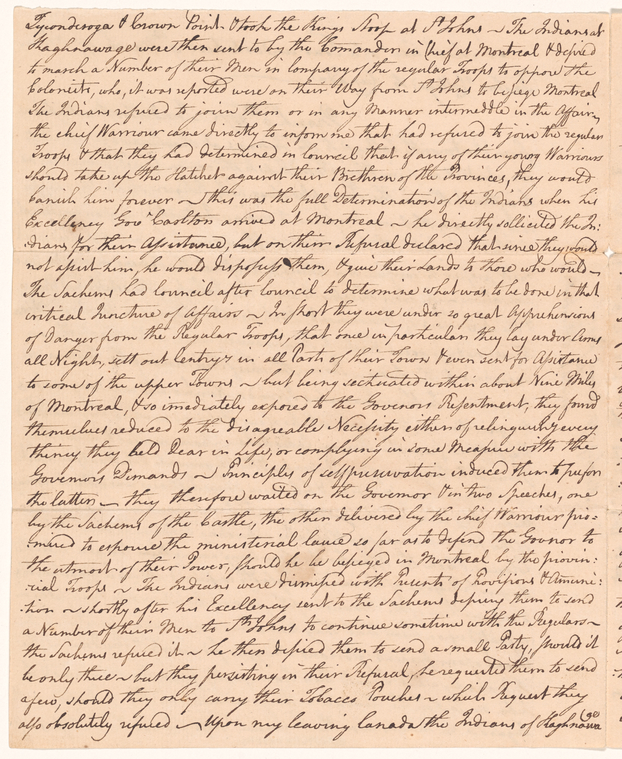 Tyconderoga & Crown Point & took the Kings Sloop at St Johns ~ The Indians at
Kaghnawage were then sent to by the Comander in Chief at Montreal & desired
to march a Number of their Men in company of the regular Troops to oppose the
Colonists, who, it was reported were on their Way from St Johns to besiege Montreal
The Indians refused to joinn them or in any Manner intermeddle in the Affair,
the chief Warriour came directly to inform me that had refused to join the regular
Troops & that they had determined in Council that if any of their young Warriours
should take up the Hatchet against their Brethren of the Provinces, they would
banish him forever ~ this was the full Determination of the Indians when his
Excellency Govr Carlton arrived at Montreal ~ he directly sollicited the In=
=dians for their Assistance, but on their Refusal declared that since they would
not assist him, he would disposess them, & give their Lands to those who would ~
The Sachems had Council after Council to determine what was to be done in that
critical Juncture of Affairs ~ In short they were under so great Apprehensions
of Danger from the Regular Troops, that once in particular they lay under Arms
all Night, sett out Centrys in all Parts of their Town & even sent for Assistance
to some of the upper Towns ~ but being scituated within about Nine Miles
of Montreal, & so imediately exposed to the Govenors Resentment, they found
themselves reduced to the disagreable Necessity either of relinquishg every
thing they held Dear in Life, or complying in some Measure with the
Governors Demands ~ Principles of self preservation induced them to prefer
the latter, ~ they therefore waited on the Governor & in two Speeches, one
by the Sachems of the Castle, the other delivered by the chief Warriour pro=
=mised to espouse the ministerial Cause so far as to defend the Govnor to
the utmost of their Power, should he be besieged in Montreal by the provin=
=cial Troops ~ The Indians were dismissed with Presents of Provisions & Amuni=
tion ~ shortly after his Excellency sent to the Sachems desiring them to send
a Number of their Men to St Johns to continue sometime with the Regulars ~
the Sachems refused it ~ he then desired them to send a small Party, should it
be only three ~ but they persisting in their Refusal, he requested them to send
a few, should they only carry their Tobacco Pouches ~ which Request they
also absolutely refused ~ Upon my leaving Canada the Indians of Kaghnawa(ge)